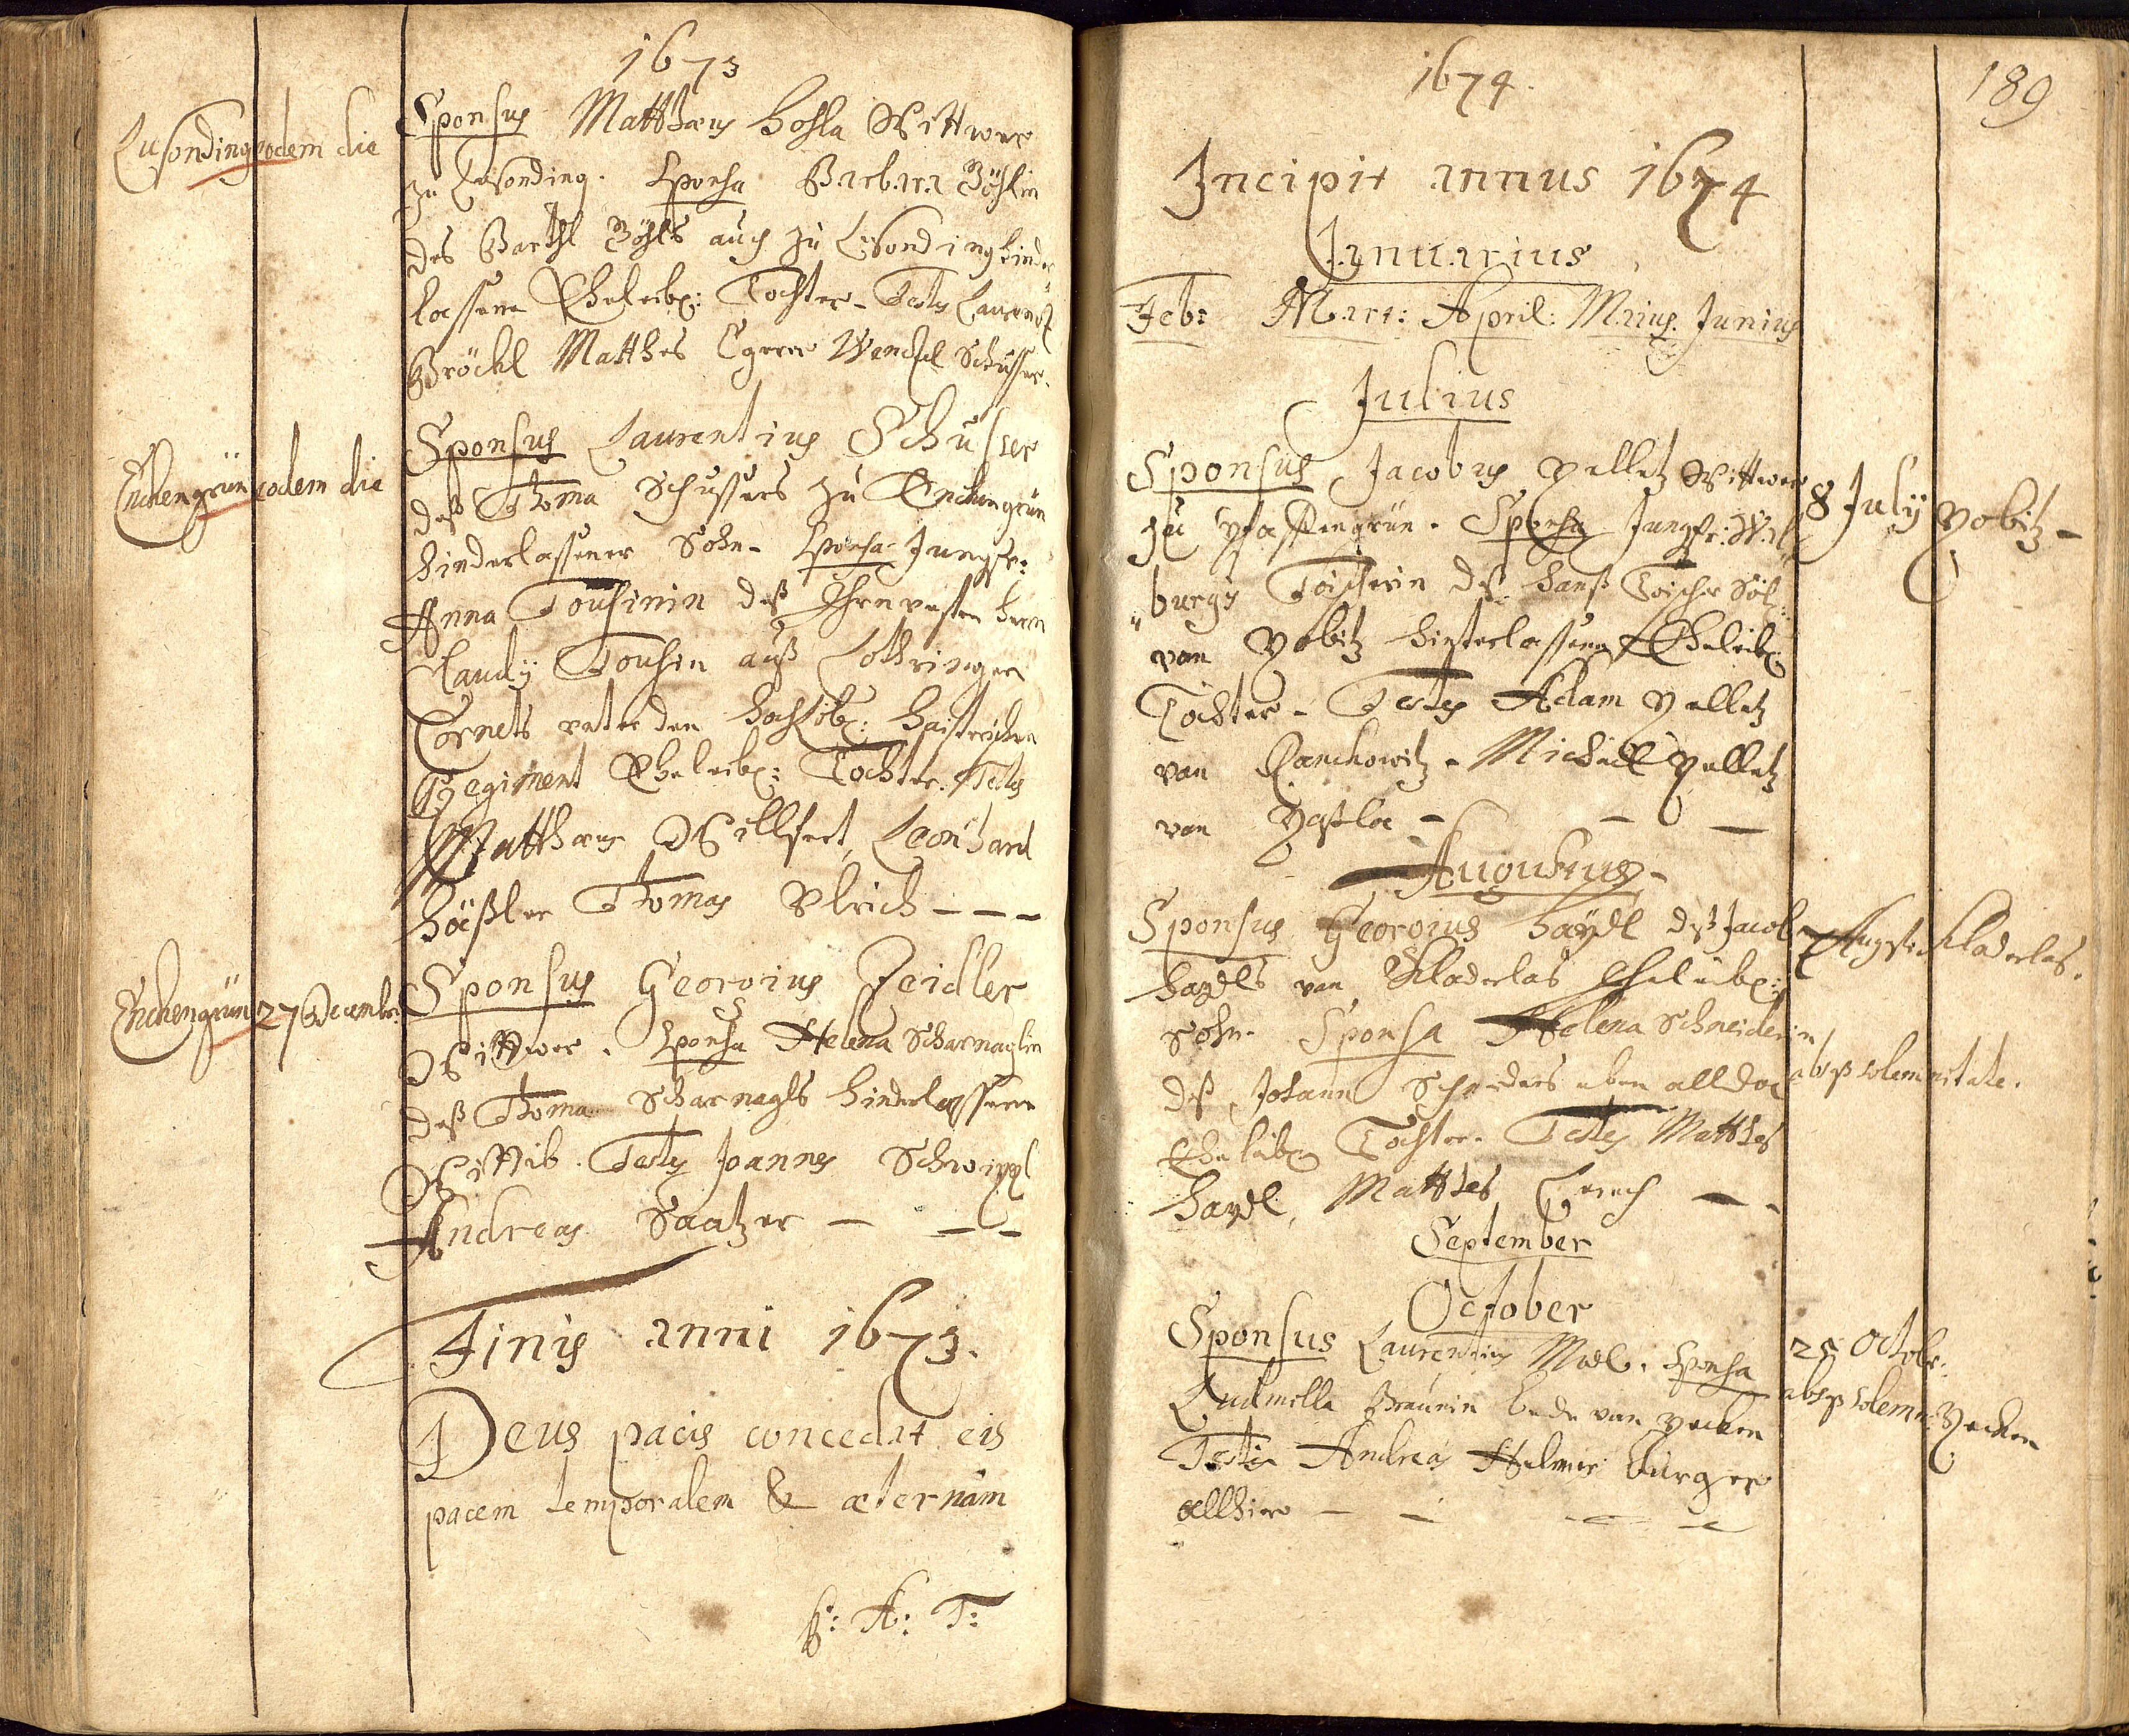 1673
Lusonding eodem die
Sponsus Matthæus Hohla Wittwer
zu Lusonding. Sponsa Barbara Böhlin
des Barthl Böhls auch zu Lusonding hinder
lassene Eheleibl: Tochter - Testes Laurentz
Bröckl Matthes Egerer Wentzel Schusser.
Enckengrün eodem die
Sponsus Laurentius Schusser
deß Thoma Schussers zu Enckengrün
hinderlassener Sohn - Sponsa Jungfr:
Anna Tousinin deß Ehrnvesten herrn
Claudy Tousin auß Lothringen
Cornets unter den hochlöbl:
Regiment Eheleibl: Tochter. Testes
Matthæus Willfert, Leonhard
Häßler Thomas Ulrich - - -
Enckengrün 27 Decembr:
Sponsus Georgius Zeidler
Wittwer. Sponsa Helena Scharnaglin
deß Thoma Scharnagls hinderlassene
Wittib. Testes Joannes Schwippl
Andreas Saatzer - - -
Finis anni 1673.
Deus pacis concedat eis
pacem temporalem & æternam
F: A: T:
1674.
189
Incipit annus 1674
Januarius
Feb: Mart: April: Maius. Junius
Julius
Sponsus Jacobus Pelletz Wittwer 8 July Pobitz -
zu Pfaffengrün. Sponsa Jungfr: Wal
"burgy Töischerin deß Hanß Töischer
von Pobitz hinterlassene Eheleibl:
Tochter - Testes Adam Pelletz
von Ranckowitz - Michäel Pelletz
von - - -
Augustus -
Sponsus Georgius Haydl deß Jacob Augusti Kladerlas.
Haydls von Kladerlas Eheleibl:
Sohn. Sponsa Helena Schneiderin
deß Johann Schneiders eben allda absq solemnitate.
Eheleibl Tochter. Testes Matthes
Haydl, Matthes Lerch - -
September
October
Sponsus Laurentius Model. Sponsa 25 Octobr:
Ludmilla Braunin bede von Pecken absq solemn: Pecken
Testes Andreas Helmer burger
allhier - - - -